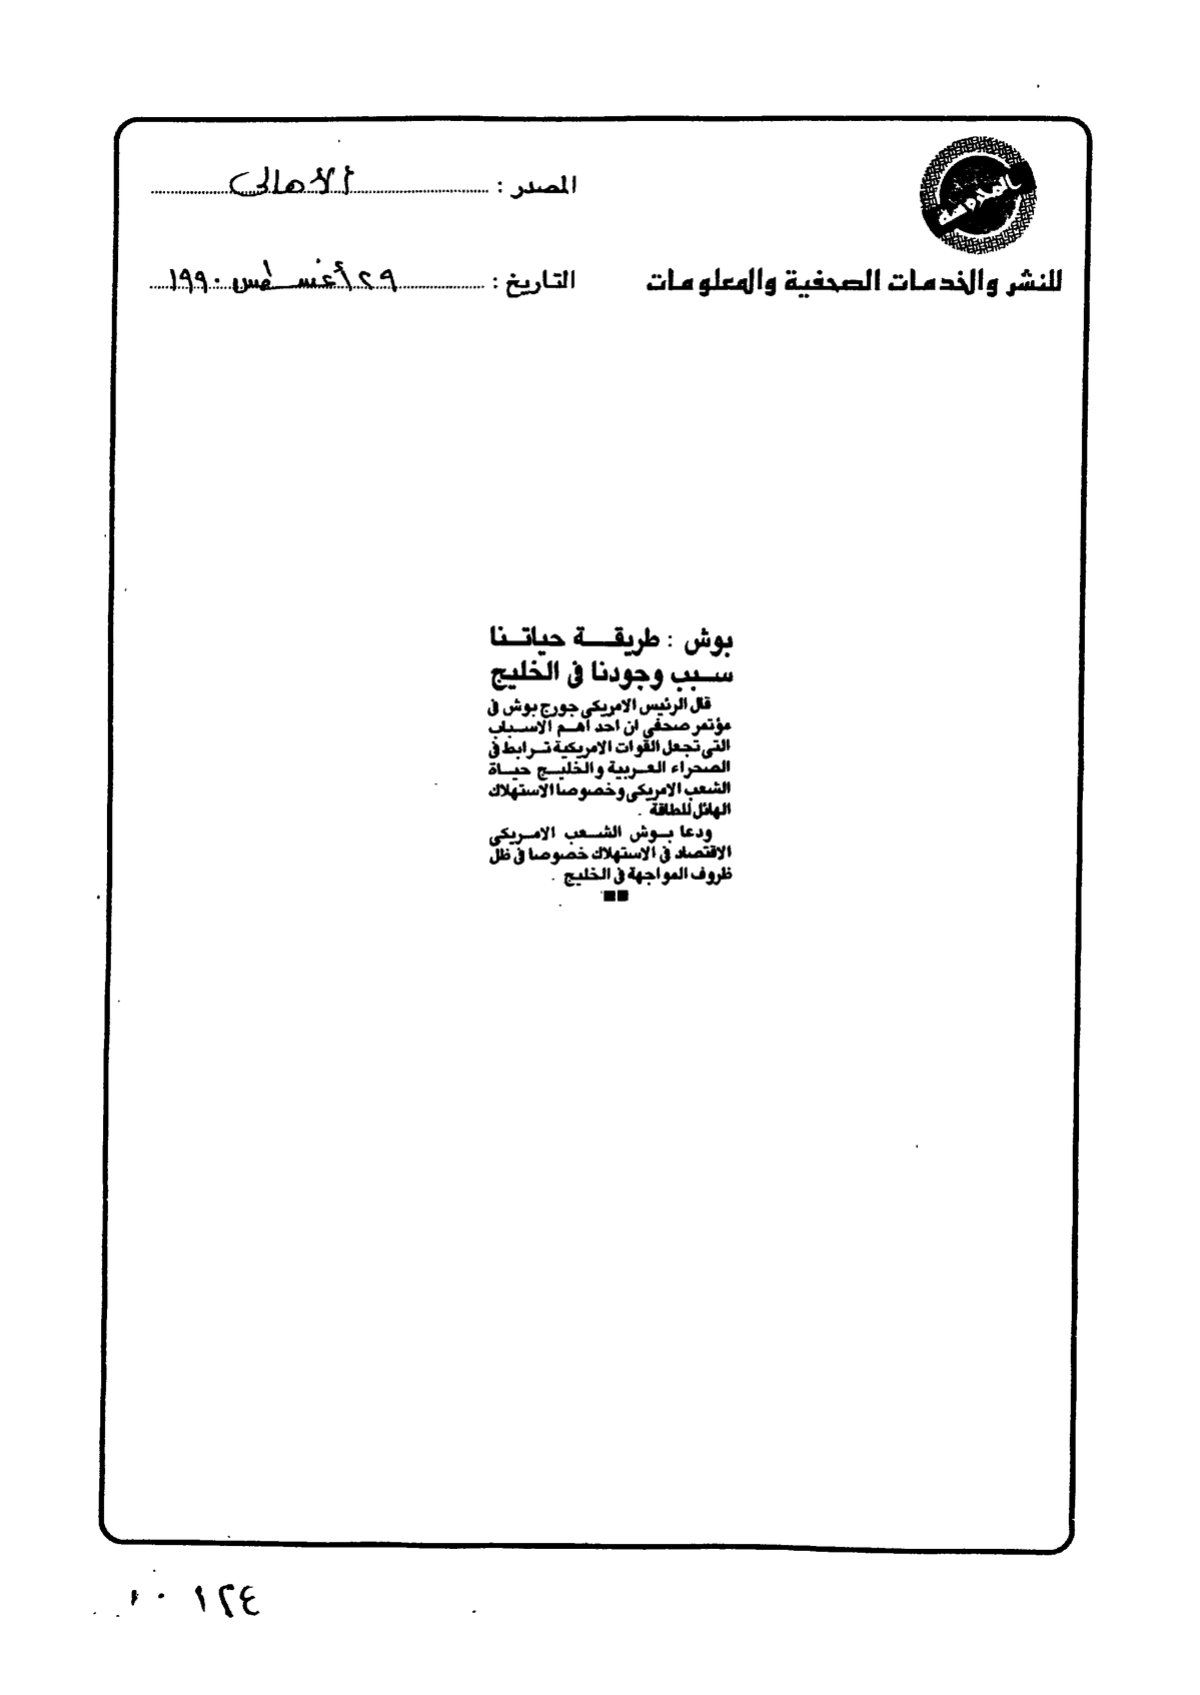 المدوسة
المصدر : الأهالى
للنشر والخدمات الصحفية والمعلومات
التاريخ : ٢٩ أغسطس ١٩٩٠
بوش : طريقة حياتنا
سبب وجودنا فى الخليج
قال الرئيس الامريكى جورج بوش فى
مؤتمر صحفى ان احد اهم الاسباب
التى تجعل القوات الامريكية ترابط فى
الصحراء العربية والخليج حياة
الشعب الامريكى وخصوصا الاستهلاك
الهائل للطاقة .
ودعا بوش الشعب الامريكى
الاقتصاد فى الاستهلاك خصوصا فى ظل
ظروف المواجهة فى الخليج .
١٢٤